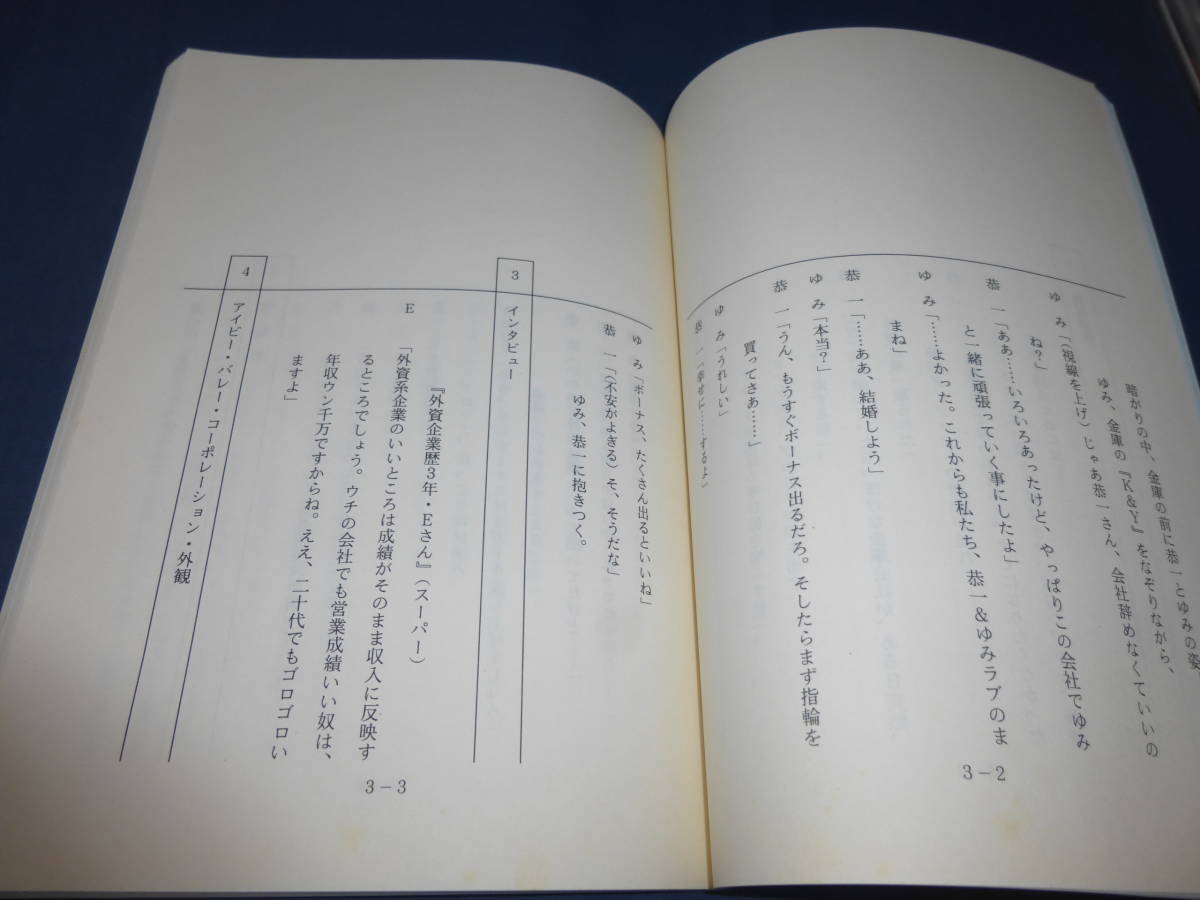 暗がりの中、金庫の前に恭一とゆみの姿。
ゆみ、金庫の『K&Y』をなぞりながら、
ゆみ「(視線を上げ)じゃあ恭一さん、会社辞めなくていいの
ね?」
恭一「ああ……いろいろあったけど、やっぱりこの会社でゆみ
と一緒に頑張っていく事にしたよ」
ゆみ「……よかった。これからも私たち、恭一&ゆみラブのま
まね」
恭一「……ああ、結婚しよう」
ゆみ「本当?」
恭一「うん、もうすぐボーナス出るだろ。そしたらまず指輪を
買ってさあ…」
ゆみ「うれしい」
恭一「幸せに……するよ」
3-2
ゆみ「ボーナス、たくさん出るといいね」
恭一「(不安がよぎる)そ、そうだな」
ゆみ、恭一に抱きつく。
3 インタビュー
『外資企業歴3年・Eさん』(スーパー)
E 「外資系企業のいいところは成績がそのまま収入に反映す
るところでしょう。ウチの会社でも営業成績いい奴は、
年収ウン千万ですからね。ええ、二十代でもゴロゴロい
ますよ」
4 アイビー・バレー・コーポレーション・外観
3-3